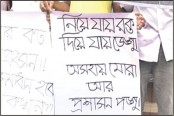 নিয়ে যায় রক্ত
দিয়ে যায় ডেঙ্গু
অসহায় মোরা
আর
প্রশাসন পঙ্গু